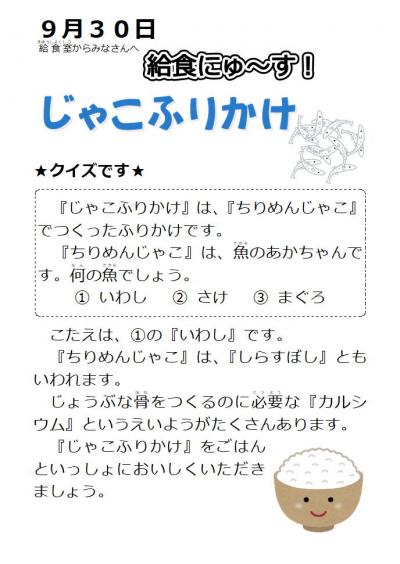 ９月３０日
給食室からみなさんへ
給食にゅ～す！
じゃこふりかけ
★クイズです★
『じゃこふりかけ』は、『ちりめんじゃこ』
でつくったふりかけです。
『ちりめんじゃこ』は、魚のあかちゃんで
す。何の魚でしょう。
① いわし　② さけ　③ まぐろ
こたえは、①の『いわし』です。
『ちりめんじゃこ』は、『しらすぼし』とも
いわれます。
じょうぶな骨をつくるのに必要な『カルシ
ウム』というえいようがたくさんあります。
『じゃこふりかけ』をごはん
といっしょにおいしくいただき
ましょう。